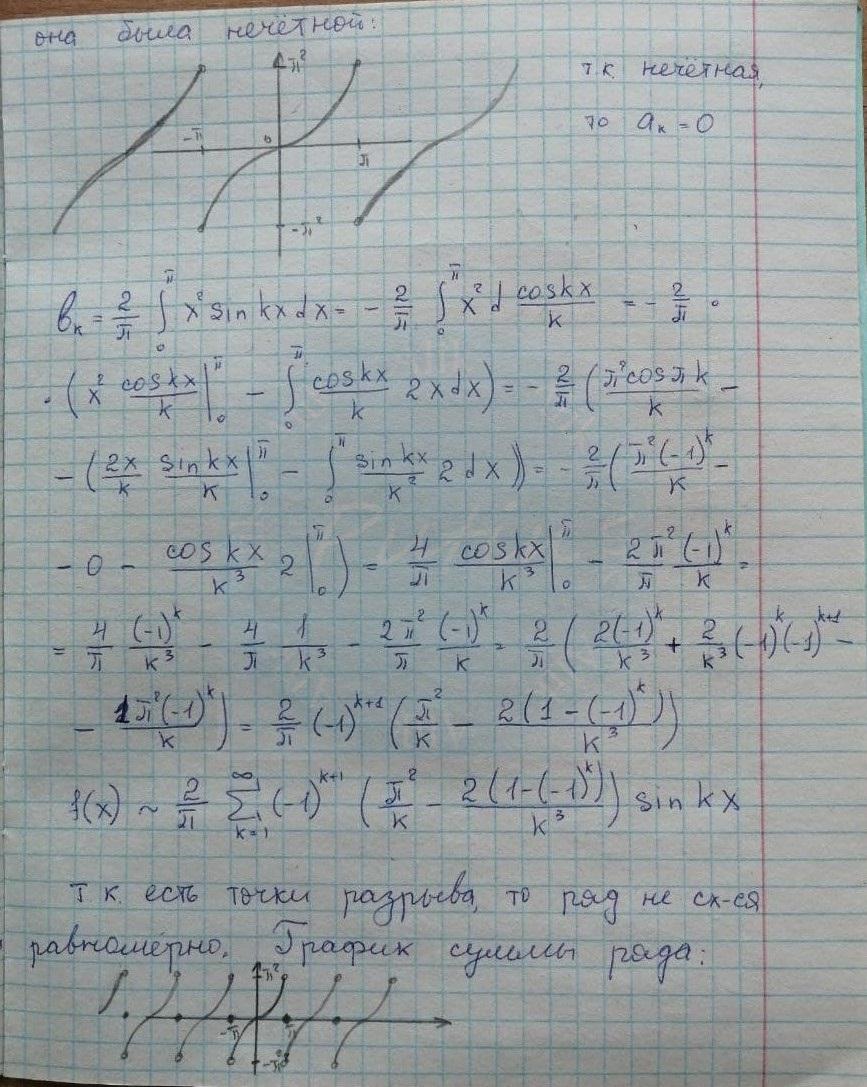 она была нечётной:
π²
т.к. нечётная,
-π 0 π
то aₖ = 0
-π²
bₖ = 2/π ∫₀^π x² sin kx dx = - 2/π ∫₀^π x² d (cos kx)/k = - 2/π ·
· ( x² (cos kx)/k |₀^π - ∫₀^π (cos kx)/k 2x dx ) = - 2/π ( (π² cos πk)/k -
- ( (2x)/k (sin kx)/k |₀^π - ∫₀^π (sin kx)/k² 2 dx )) = - 2/π ( (π² (-1)^k)/k -
- 0 - (cos kx)/k³ 2 |₀^π ) = 4/π (cos kx)/k³ |₀^π - (2π²)/π (-1)^k/k =
= 4/π (-1)^k/k³ - 4/π 1/k³ - (2π²)/π (-1)^k/k = 2/π ( (2(-1)^k)/k³ + 2/k³ (-1)^k (-1)^(k+1) -
- (1π² (-1)^k)/k ) = 2/π (-1)^(k+1) ( π²/k - (2(1-(-1)^k))/k³ )
f(x) ~ 2/π ∑_(k=1)^∞ (-1)^(k+1) ( π²/k - (2(1-(-1)^k))/k³ ) sin kx
Т.к. есть точки разрыва, то ряд не сх-ся
равномерно. График суммы ряда:
π²
-π π
-π²